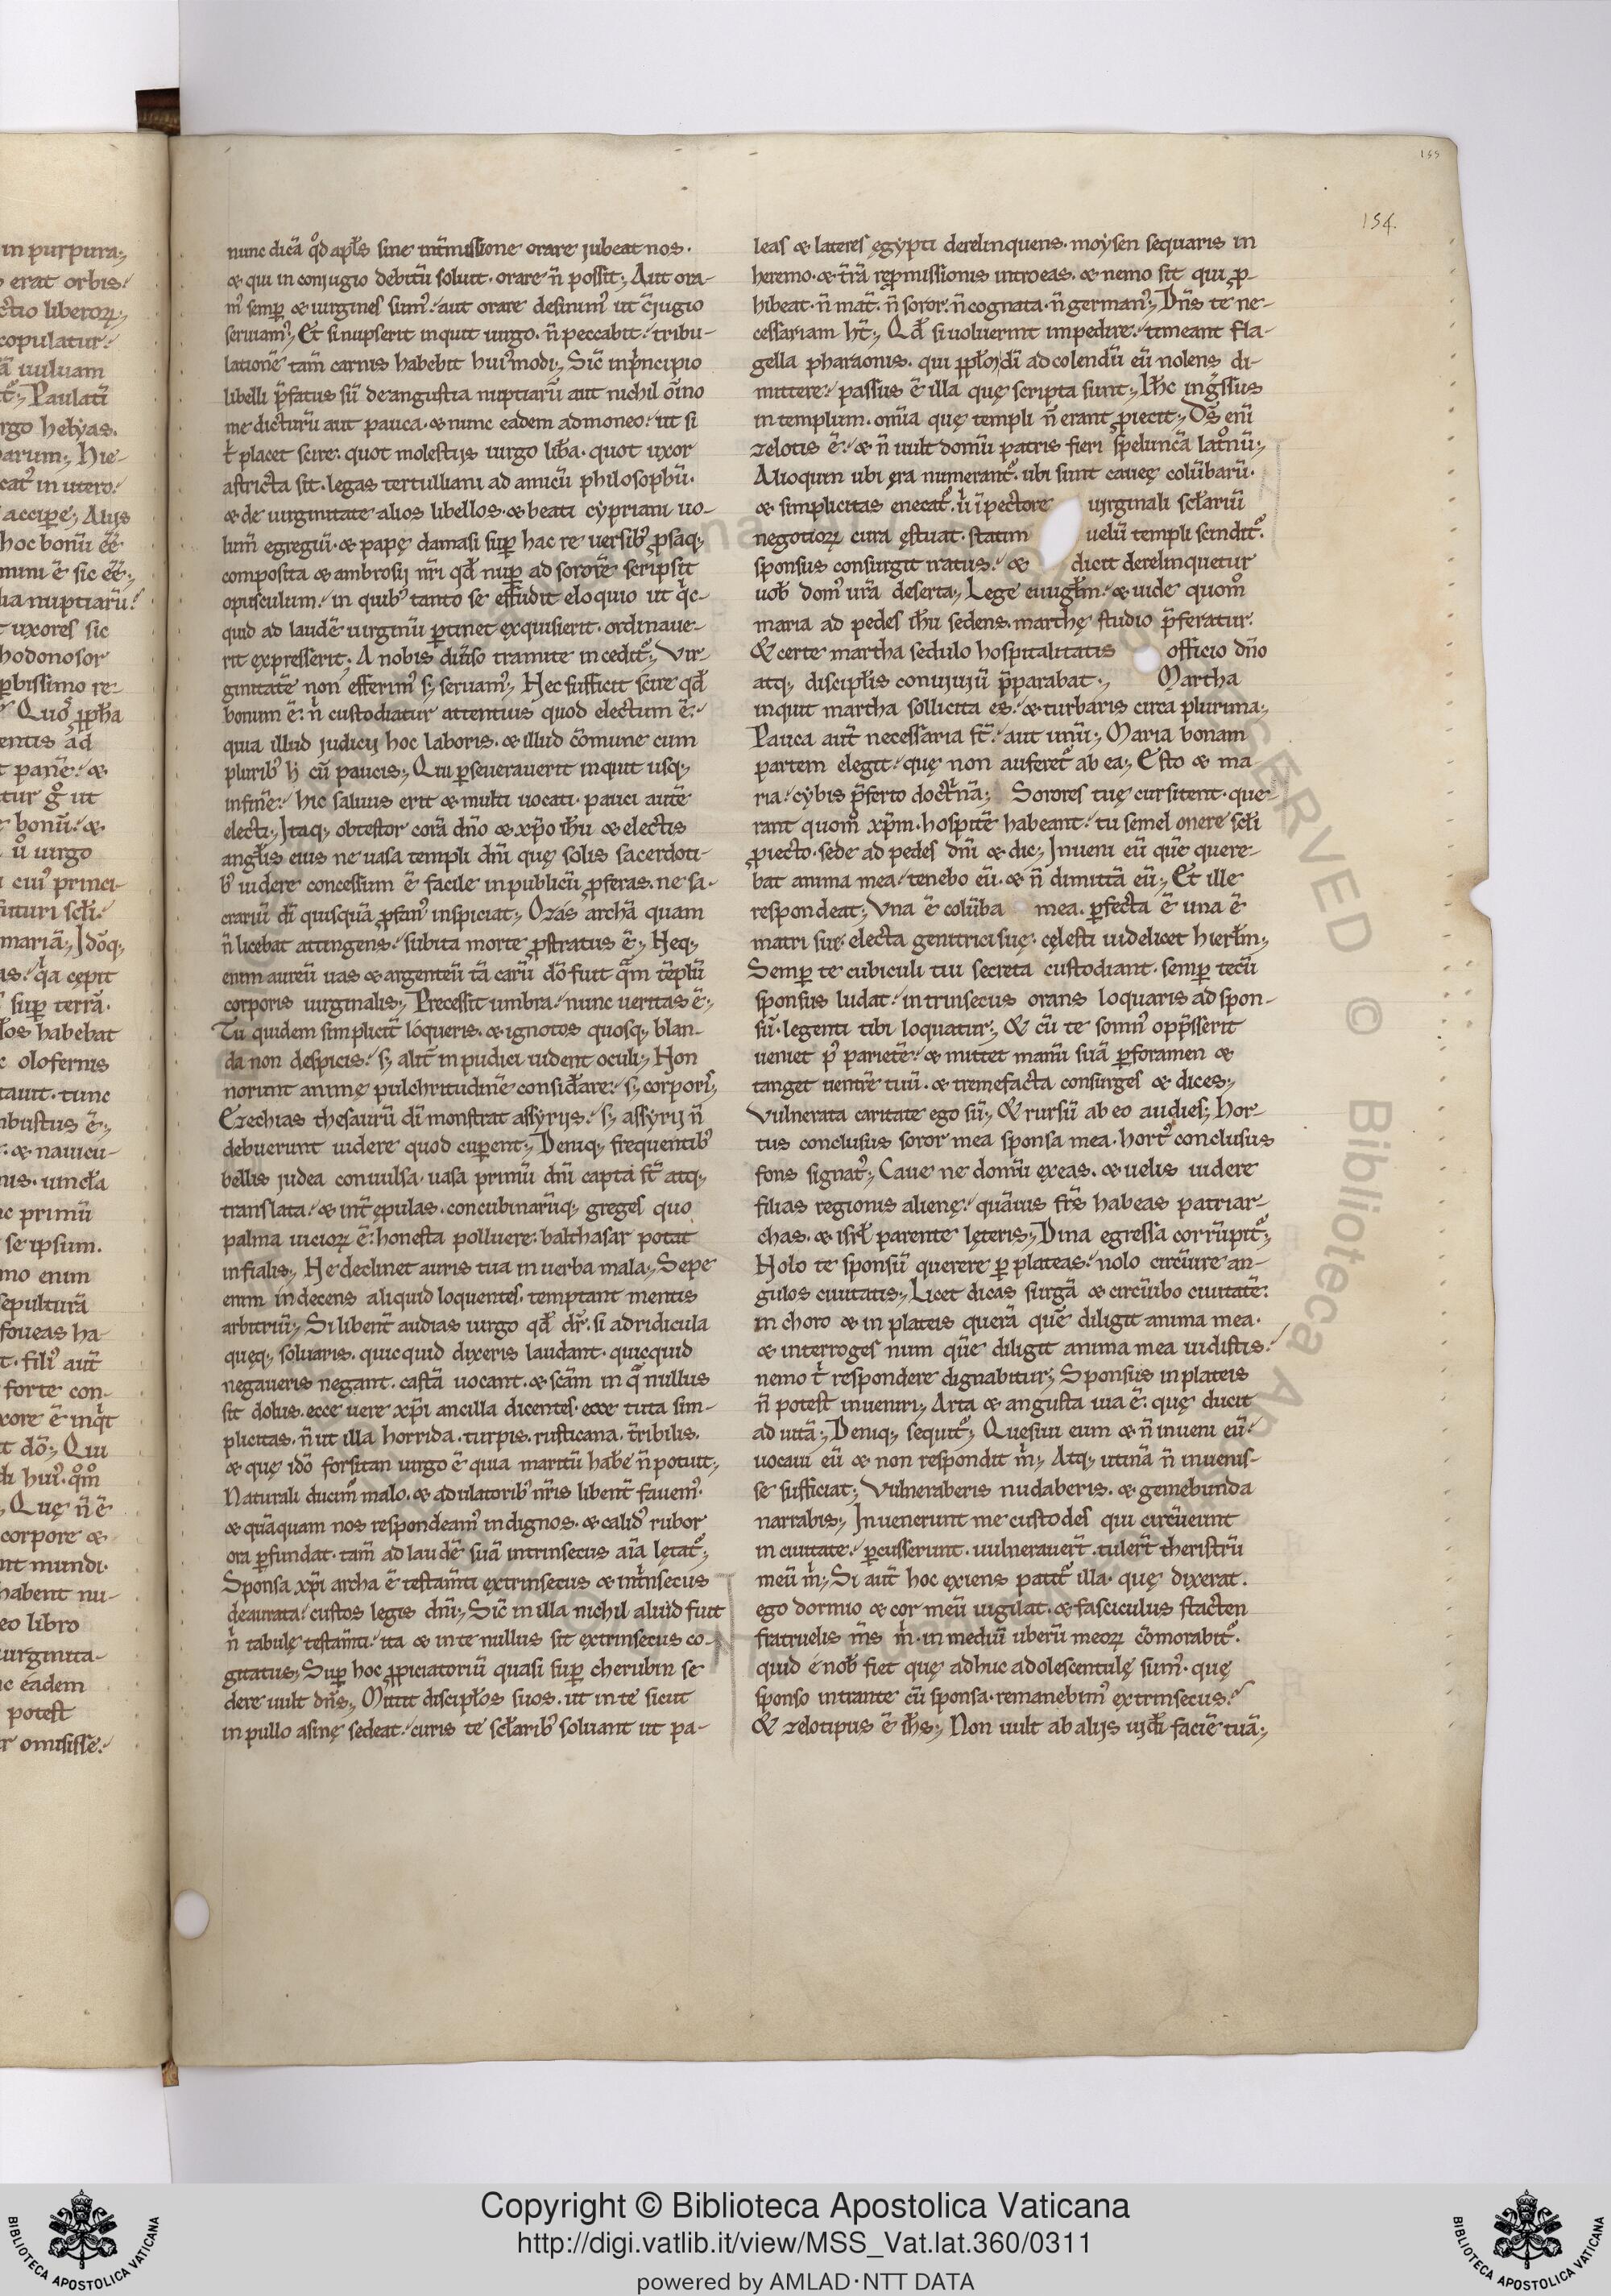 155
154.
in purpura;
erat orbis.
ctio liberoꝝ;
copulatur.
uuluam
Paulatī
rgo helẏas.
arum; Hie-
cat᷒ in utero.
accipe; Alijs
hoc bonū eē
mini ē sic eē;
lia nuptiarū.
uxores sic
hodonosor
ꝑbissimo re-
Quo ꝓph̄a
entis ad
panē. &
tur gͦ ut
bonū. &
uͦ uirgo
cui᷒ princi-
futuri scl̄i.
mariā; Idōq;
as. qͣa cępit
suꝑ terrā.
los habebat
olofernis
tauit. tunc
bustus ē;
& nauicu-
nis. uincl̄a
primū
se ipsum.
mo enim
sepulturā
foueas ha-
t. fili᷒ aut̄
forte con-
xore ē inqͥt
dō; Qui
di hui᷒. qͦmͦ
Quę n̄ ē
corpore &
nt mundi.
habent nu-
eo libro
uirginita-
c eadem
potest
omisisse.
nunc dicā qͦd apl̄s sine int̄missione orare jubeat nos.
& qui in conjugio debitū soluit. orare n̄ possit; Aut ora-
m᷒ semꝑ & uirgines sum᷒. aut orare desinim᷒ ut c̄jugio
seruiam᷒; Et si nupserit inquit uirgo. n̄ peccabit. tribu-
lationē tam̄ carnis habebit hui᷒modi; Sic̄ in pͥncipio
libelli p̄fatus sū de angustia nuptiarū aut nichil oīno
me dicturū aut pauca. & nunc eadem admoneo. ut si
tͥ placet scire. quot molestijs uirgo lib̄a. quot uxor
astricta sit. legas tertulliani ad amicū philosophū.
& de uirginitate alios libellos. & beati cẏpriani uo-
lum̄ egregiū. & papę damasi suꝑ hac re uersib᷒ ꝓsaq;
composita & ambrosij nr̄i qd̄ nuꝑ ad sororē scripsit
opusculum. in quib᷒ tanto se effudit eloquio ut qͥc-
quid ad laudē uirginū ꝑtinet ęxquisierit. ordinaue-
rit ęxpresserit; A nobis diu̅so tramite inceditᷣ; Vir-
ginitatē non efferim᷒ s; seruam᷒; Hec sufficit scire qd̄
bonum ē. nͥ custodiatur attentius quod electum ē.
quia illud judicij hoc laboris. & illud c̄mune cum
plurib᷒ h̄ cū paucis; Qui ꝑseuerauerit inquit usq;
in finē. hic saluus erit & multi uocati. pauci autē
electi; Itaq; obtestor corā dn̄o & xp̄o ih̄u & electis
angl̄is eius ne uasa templi dn̄i quę solis sacerdoti-
b᷒ uidere concessum ē facile in publicū ꝓferas. ne sa-
crariū di̅ quisquā ꝓfan᷒ inspiciat; Ozás archā quam
n̄ licebat attingens. subita morte ꝓstratus ē; Neq;
enim aureū uas & argenteū tā carū dō fuit qͣm tēplū
corporis uirginalis; Precessit umbra. nunc ueritas ē;
Tu quidem simplicit̄ lóqueris. & ignotos quosq; blan-
da non despicis. s; alit̄ inpudici uident oculi; Non
norunt animę pulchritudinē considͤare. s; corporis;
Ezechias thesaurū di̅ monstrat assẏrijs. s; assẏrij n̄
debuerunt uidere quod cuꝑent; Deniq; frequentib᷒
bellis judea conuulsa. uasa primū dn̄i capta st̄ atq;
translata. & int̄ ępulas. concubinarūq; greges quo
palma uicioꝝ ē. honesta polluere. balthasar potat
in fialis; Ne declinet auris tua in uerba mala; Sepe
enim indecens aliquid loquentes. temptant mentis
arbitriū; Si libent̄ audias uirgo qd̄ dr̄. si ad ridicula
quęq; soluaris. quicquid dixeris laudant. quicquid
negaueris negant. castā uocant. & scām in qͣ nullus
sit dolus. ecce uere xp̄i ancilla dicentes. ecce tuta sim-
plicitas. n̄ ut illa horrida. turpis. rusticana. t̄ribilis.
& quę idō forsitan uirgo ē quia maritū habe̅ n̄ potuit;
Naturali ducim᷒ malo. & adulatorib᷒ nr̄is libent̄ fauem᷒.
& quāquam nos respondeam᷒ indignos. & calid᷒ rubor
ora ꝑfundat. tam̄ ad laudē suā intrinsecus aīa lętatᷣ;
Sponsa xp̄i archa ē testam̄ti ęxtrinsecus & intͥnsecus
deaurata. custos legis dn̄i; Sic̄ in illa nichil aliud fuit
nͥ tabulę testam̄ti. ita & in te nullus sit ęxtrinsecus co-
gitatus; Suꝑ hoc ꝓpiciatoriū quasi suꝑ cherubin se
dere uult dn̄s; Mittit discipl̄os suos. ut in te sicut
in pullo asinę sedeat. curis te scl̄arib᷒ soluant ut pa-
leas & lateres ęgẏpti derelinquens. moẏsen sequaris in
heremo. & t̄rā reꝓmissionis introeas. & nemo sit qui ꝓ-
hibeat. n̄ mat̄. n̄ soror. n̄ cognata. n̄ german᷒; Dn̄s te ne-
cessariam ht̄; Qd̄ si uoluerint impedire. timeant fla-
gella pharaonis. qui ppl̄m di̅ ad colendū eū nolens di-
mittere. passus ē illa quę scripta sunt; Ih̄c ingͤssus
in templum. omīa quę templi n̄ erant ꝓiecit; D̄s enī
zelotis ē. & n̄ uult domū patris fieri speluncā latͦnū;
Alioquin ubi ęra numerantᷣ. ubi sunt caueę colūbarū.
& simplicitas enecatᷣ. uͥ ī pectore uirginali scl̄ariū
negotioꝝ cura ęstuat. statim uelū templi scinditᷣ.
sponsus consurgit iratus. & dicit derelinquetur
uob̄ dom᷒ ur̄a deserta; Lege euugl̄m. & uide quomͦ
maria ad pedes ih̄u sedens. marthę studio p̄feratur.
& certe martha sedulo hospitalitatis officio dn̄o
atq; discipl̄is conuiuiū p̄parabat; Martha
inquit martha sollicita es. & turbaris circa plurima;
Pauca aut̄ necessaria st̄. aut unū; Maria bonam
partem elegit. quę non auferetᷣ ab ea; Esto & ma
ria. cẏbis p̄ferto doctͥnā; Sorores tuę cursitent. que-
rant quomͦ xp̄m. hospitē habeant. tu semel onere scl̄i
ꝓiecto. sede ad pedes dn̄i & dic; Inueni eū quē quere-
bat anima mea. tenebo eū. & n̄ dimittā eū; Et ille
respondeat; Vna ē colūba mea. ꝑfecta ē una ē
matri suę. electa genitrici suę. cęlesti uidelicet hierl̄m;
Semper te cubiculi tui secreta custodiant. semꝑ tecū
sponsus ludat. intrinsecus orans loquaris ad spon-
sū. legenti tibi loquatur; & cū te somn᷒ opp̄sserit
ueniet p᷒ parietē. & mittet manū suā ꝑ foramen &
tanget uentrē tuū. & tremefacta consurges & dices;
Vulnerata caritate ego sū; & rursū ab eo audies; Hor-
tus conclusus soror mea sponsa mea. hort᷒ conclusus
fons signat᷒; Caue ne domū ęxeas. & uelis uidere
filias regionis alienę. quāuis fr̄s habeas patriar-
chas. & isrl̄ parente lęteris; Dina egressa corrūpitᷣ;
Nolo te sponsū querere ꝑ plateas. nolo circūire an-
gulos ciuitatis; Licet dicas surgā & circūibo ciuitatē.
in choro & in plateis querā quē diligit anima mea.
& interroges num quē diligit anima mea uidistis.
nemo tͥ respondere dignabitur; Sponsus in plateis
n̄ potest inueniri; Arta & angusta uia ē. quę ducit
ad uitā; Deniq; sequitᷣ; Quesiui eum & n̄ inueni eū.
uocaui eū & non respondit mͥ; Atq; utinā n̄ inuenis-
se sufficiat; Vulneraberis nudaberis. & gemebunda
narrabis; Inuenerunt me custodes qui circūeunt
in ciuitate. ꝑcusserunt. uulnerauer̄t. tuler̄t theristrū
meū mͥ; Si aut̄ hoc ęxiens patitᷣ illa. quę dixerat.
ego dormio & cor meū uigilat. & fasciculus stacten
fratruelis m̄s mͥ. in mediū uberū meoꝝ c̄morabitᷣ.
quid é nob̄ fiet quę adhuc adolescentulę sum᷒. quę
sponso intrante cū sponsa. remanebim᷒ ęxtrinsecus.
& zelotipus ē ih̄s; Non uult ab alijs uidͤi faciē tuā;
Copyright © Biblioteca Apostolica Vaticana
http://digi.vatlib.it/view/MSS_Vat.lat.360/0311
powered by AMLAD·NTT DATA
BIBLIOTECA APOSTOLICA VATICANA
BIBLIOTECA APOSTOLICA VATICANA